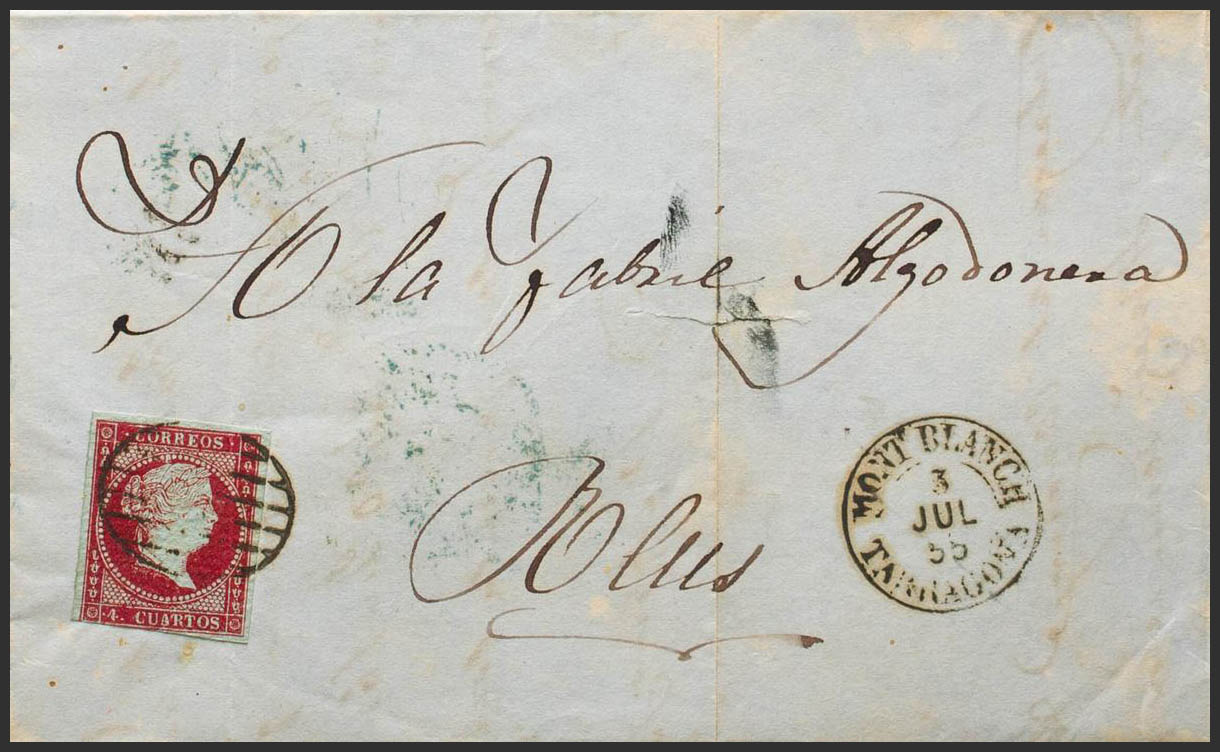 A la Fabril Algodonera
Reus
CORREOS
4. CUARTOS
MONT BLANCH
3
JUL
55
TARRAGONA